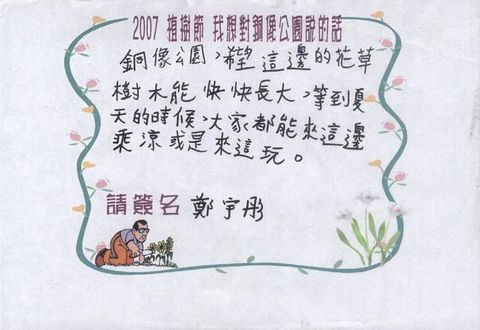 2007 植樹節 我想對銅像公園說的話
銅像公園，希望這邊的花草
樹木能快快長大，等到夏
天的時候，大家都能來這邊
乘涼或是來這玩。
請簽名 鄭宇彤